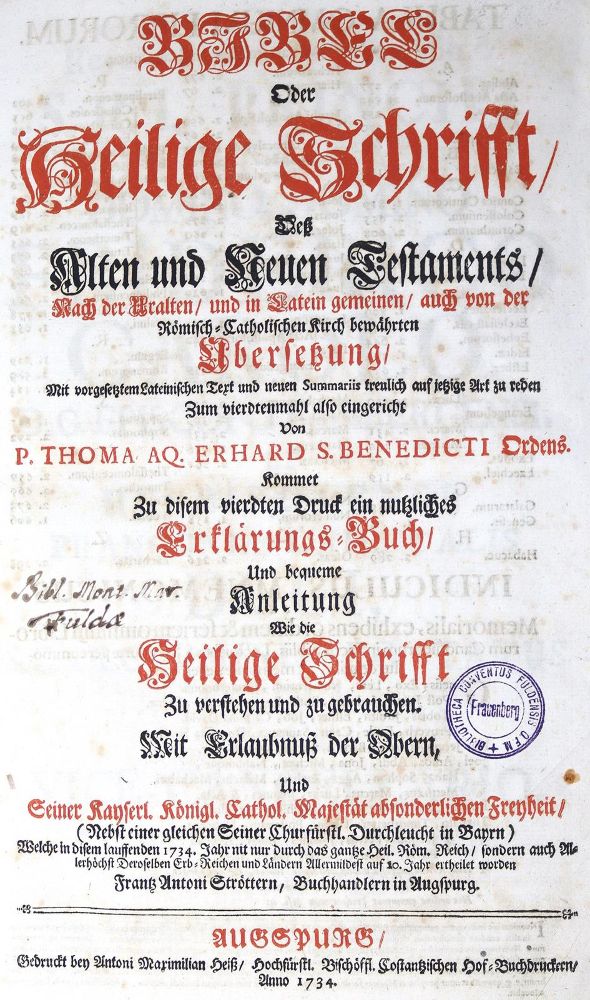 BIBEL
Oder
Heilige Schrifft/
Deß
Alten und Neuen Testaments/
Nach der Uralten/ und in Latein gemeinen/ auch von der
Römisch-Catholischen Kirch bewährten
Ubersetzung/
Mit vorgesetztem Lateinischen Text und neuen Summariis treulich auf jetzige Art zu reden
Zum vierdtenmahl also eingericht
Von
P. THOMA AQ. ERHARD S. BENEDICTI Ordens.
Kommet
Zu disem vierdten Druck ein nutzliches
Erklärungs-Buch/
Und bequeme
Anleitung
Wie die
Heilige Schrifft
Zu verstehen und zu gebrauchen.
Mit Erlaubnuß der Obern,
Und
Seiner Kayserl. Königl. Cathol. Majestät absonderlichen Freyheit/
(Nebst einer gleichen Seiner Churfürstl. Durchleucht in Bayrn)
Welche in disem lauffenden 1734. Jahr nit nur durch das gantze Heil. Röm. Reich/ sondern auch Al-
lerhöchst Deroselben Erb-Reichen und Ländern Allermildest auf 10. Jahr ertheilet worden
Frantz Antoni Ströttern, Buchhandlern in Augspurg.
AUGSPURG/
Gedruckt bey Antoni Maximilian Heiß/ Hochfürstl. Bischöffl. Costantzischen Hof-Buchdruckern/
Anno 1734.
Bibl. Mont. Mar.
Fuldæ
BIBLIOTHECA CONVENTUS FULDENSIS O F M
Frauenberg